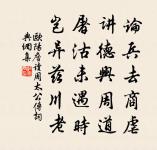 論兵去商虐
講德興周道
屠沽未遇時
豈異茲川老
歐陽詹讀周太公傳詞
典網集